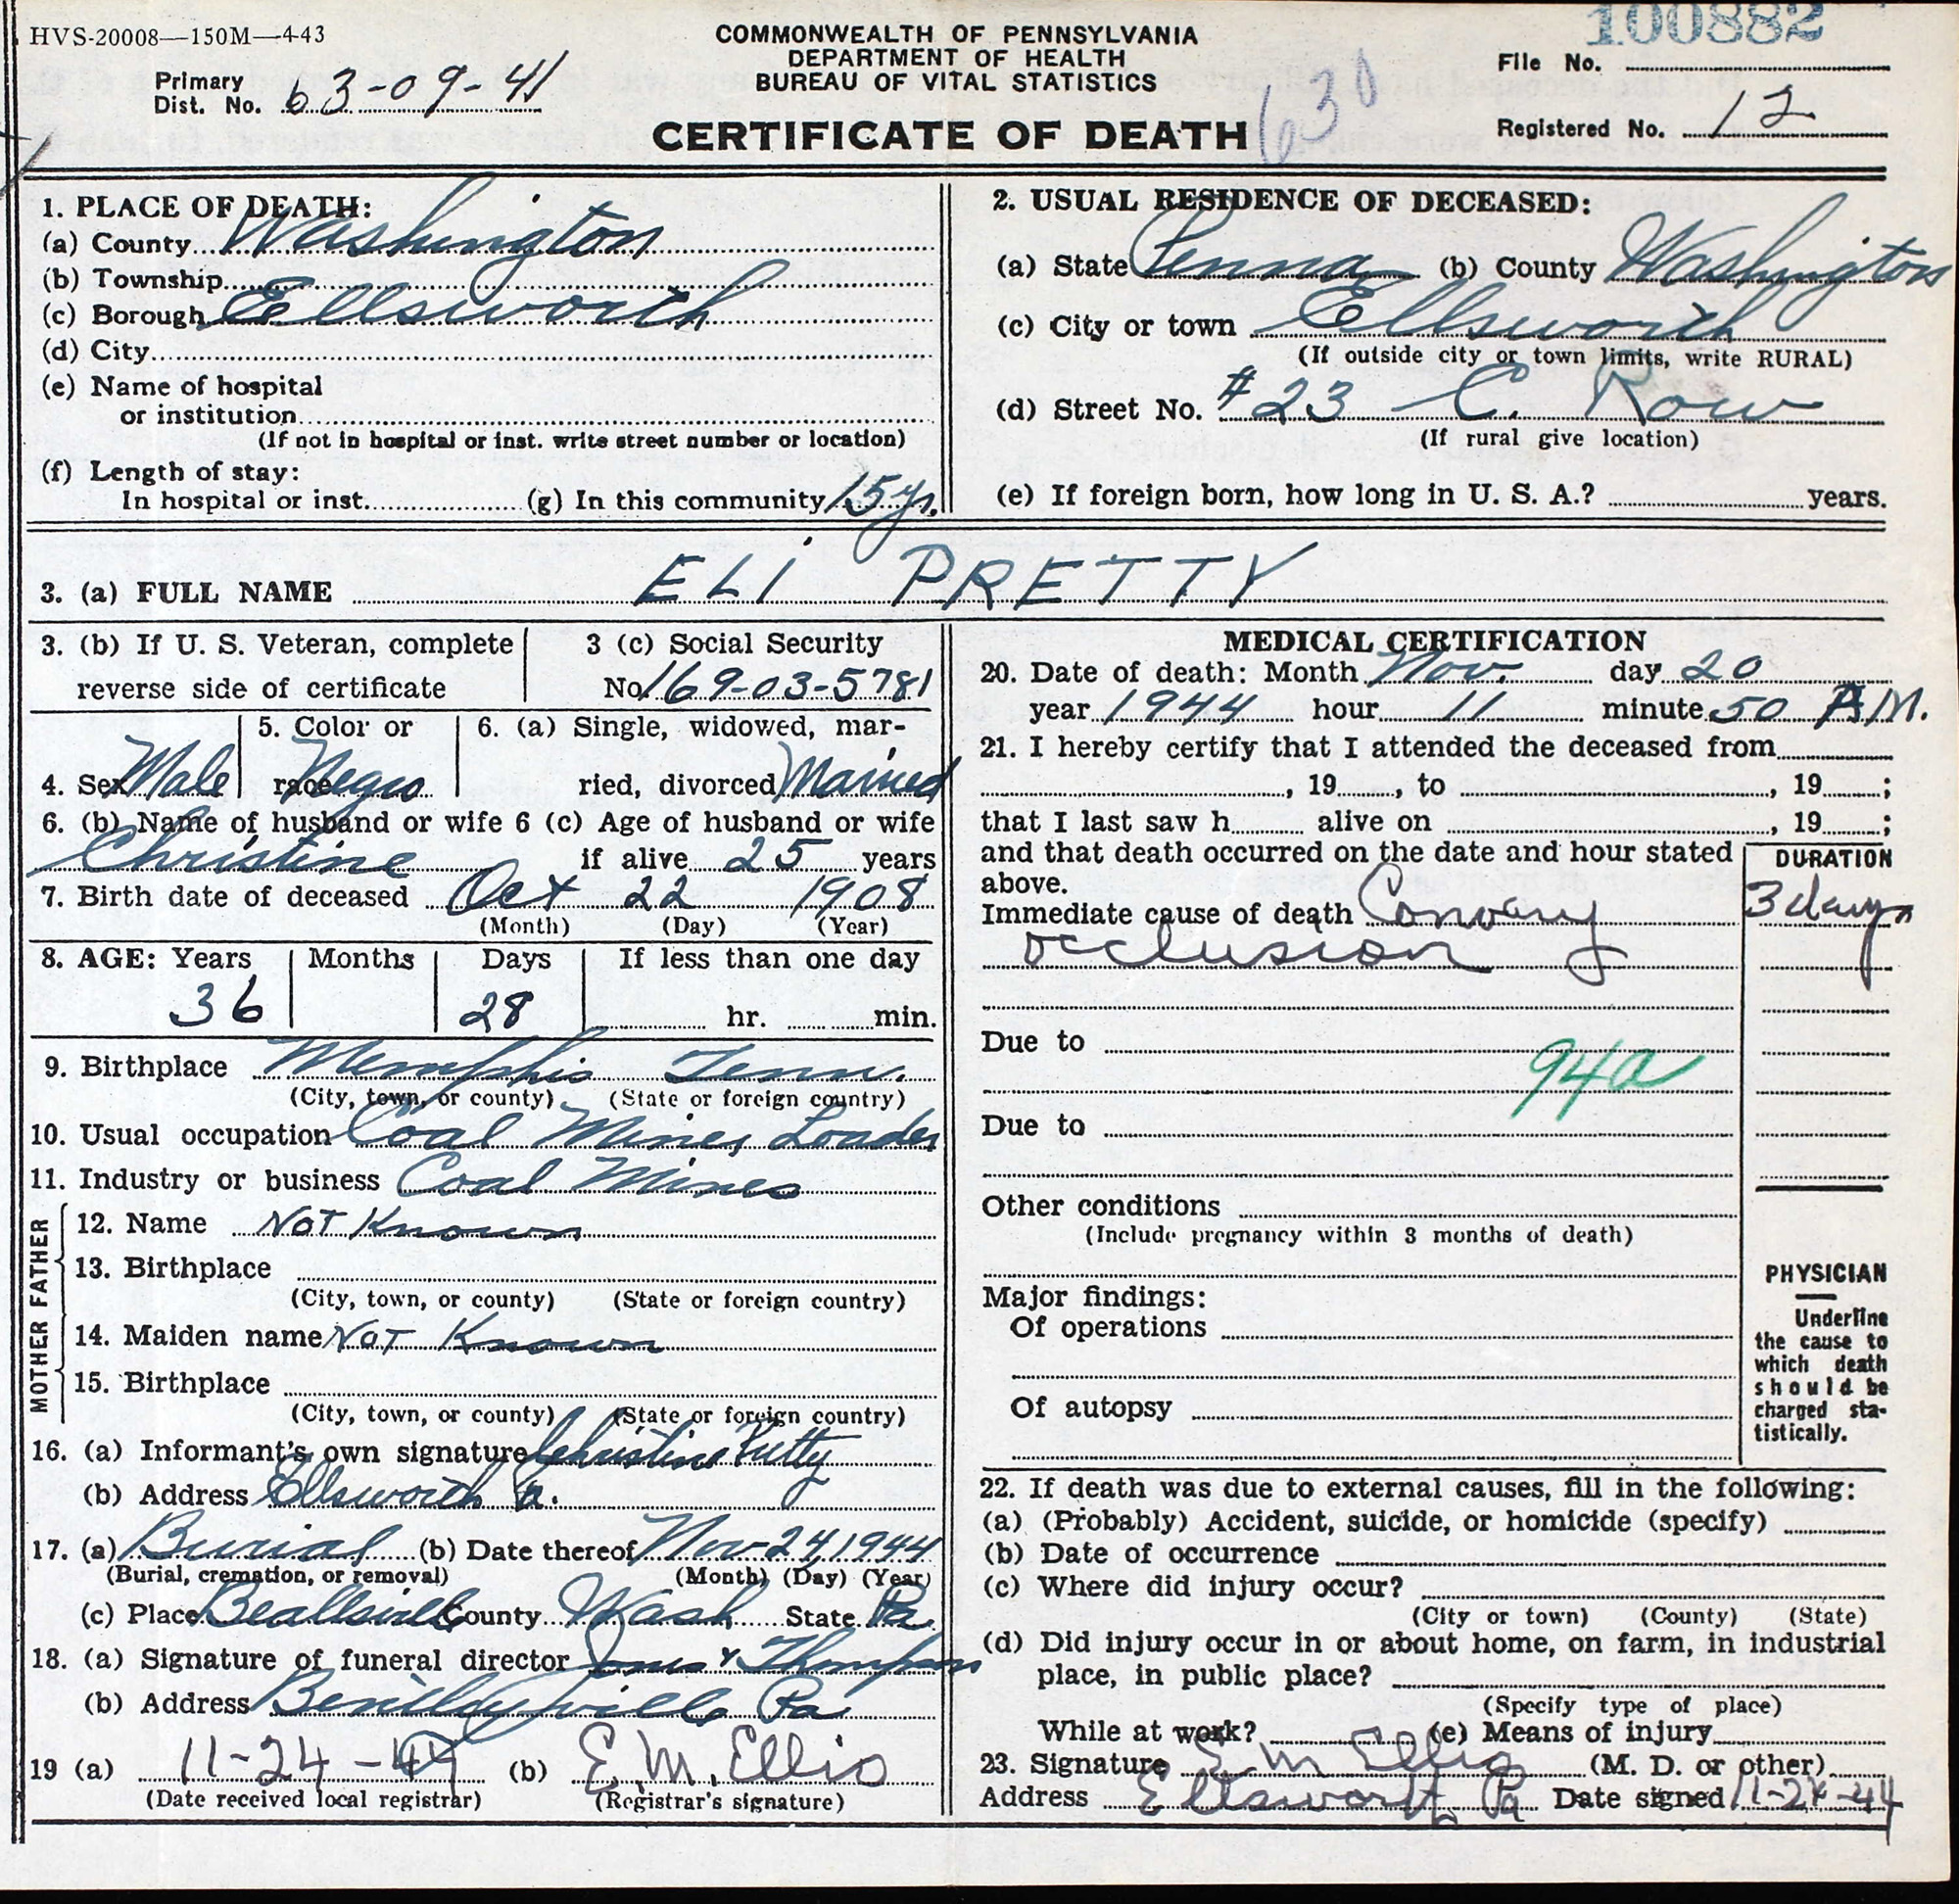 HVS-20008—150M—443
COMMONWEALTH OF PENNSYLVANIA
DEPARTMENT OF HEALTH
BUREAU OF VITAL STATISTICS
CERTIFICATE OF DEATH
630
100882
File No.
Primary Dist. No. 63-09-41
Registered No. 12
1. PLACE OF DEATH:
(a) County Washington
(b) Township
(c) Borough Ellsworth
(d) City
(e) Name of hospital
or institution
(If not in hospital or inst. write street number or location)
(f) Length of stay:
In hospital or inst. (g) In this community 15 yr.
2. USUAL RESIDENCE OF DECEASED:
(a) State Penna (b) County Washington
(c) City or town Ellsworth
(If outside city or town limits, write RURAL)
(d) Street No. #23 C. Row
(If rural give location)
(e) If foreign born, how long in U. S. A.? years.
3. (a) FULL NAME ELI PRETTY
3. (b) If U. S. Veteran, complete
reverse side of certificate
3 (c) Social Security
No. 169-03-5781
4. Sex Male
5. Color or
race Negro
6. (a) Single, widowed, mar-
ried, divorced Married
6. (b) Name of husband or wife
Christine
6 (c) Age of husband or wife
if alive 25 years
7. Birth date of deceased Oct 22 1908
(Month) (Day) (Year)
8. AGE: Years Months Days If less than one day
36 28 hr. min.
9. Birthplace Memphis Tenn.
(City, town, or county) (State or foreign country)
10. Usual occupation Coal Mines Loader
11. Industry or business Coal Mines
FATHER
12. Name Not Known
13. Birthplace
(City, town, or county) (State or foreign country)
MOTHER
14. Maiden name Not Known
15. Birthplace
(City, town, or county) (State or foreign country)
16. (a) Informant's own signature Christine Pretty
(b) Address Ellsworth Pa.
17. (a) Burial (b) Date thereof Nov-24, 1944
(Burial, cremation, or removal) (Month) (Day) (Year)
(c) Place Beallsville County Wash State Pa
18. (a) Signature of funeral director Jones & Thompson
(b) Address Bentleyville Pa
19 (a) 11-24-44 (b) E. M. Ellis
(Date received local registrar) (Registrar's signature)
MEDICAL CERTIFICATION
20. Date of death: Month Nov. day 20
year 1944 hour 11 minute 50 A.M.
21. I hereby certify that I attended the deceased from
, 19 , to , 19 ;
that I last saw h alive on , 19 ;
and that death occurred on the date and hour stated
above.
DURATION
Immediate cause of death Coronary 3 days
occlusion
Due to
94a
Due to
Other conditions
(Include pregnancy within 3 months of death)
Major findings:
Of operations
Of autopsy
PHYSICIAN
Underline
the cause to
which death
should be
charged sta-
tistically.
22. If death was due to external causes, fill in the following:
(a) (Probably) Accident, suicide, or homicide (specify)
(b) Date of occurrence
(c) Where did injury occur?
(City or town) (County) (State)
(d) Did injury occur in or about home, on farm, in industrial
place, in public place?
(Specify type of place)
While at work? (e) Means of injury
23. Signature E M Ellis (M. D. or other)
Address Ellsworth Pa Date signed 11-24-44